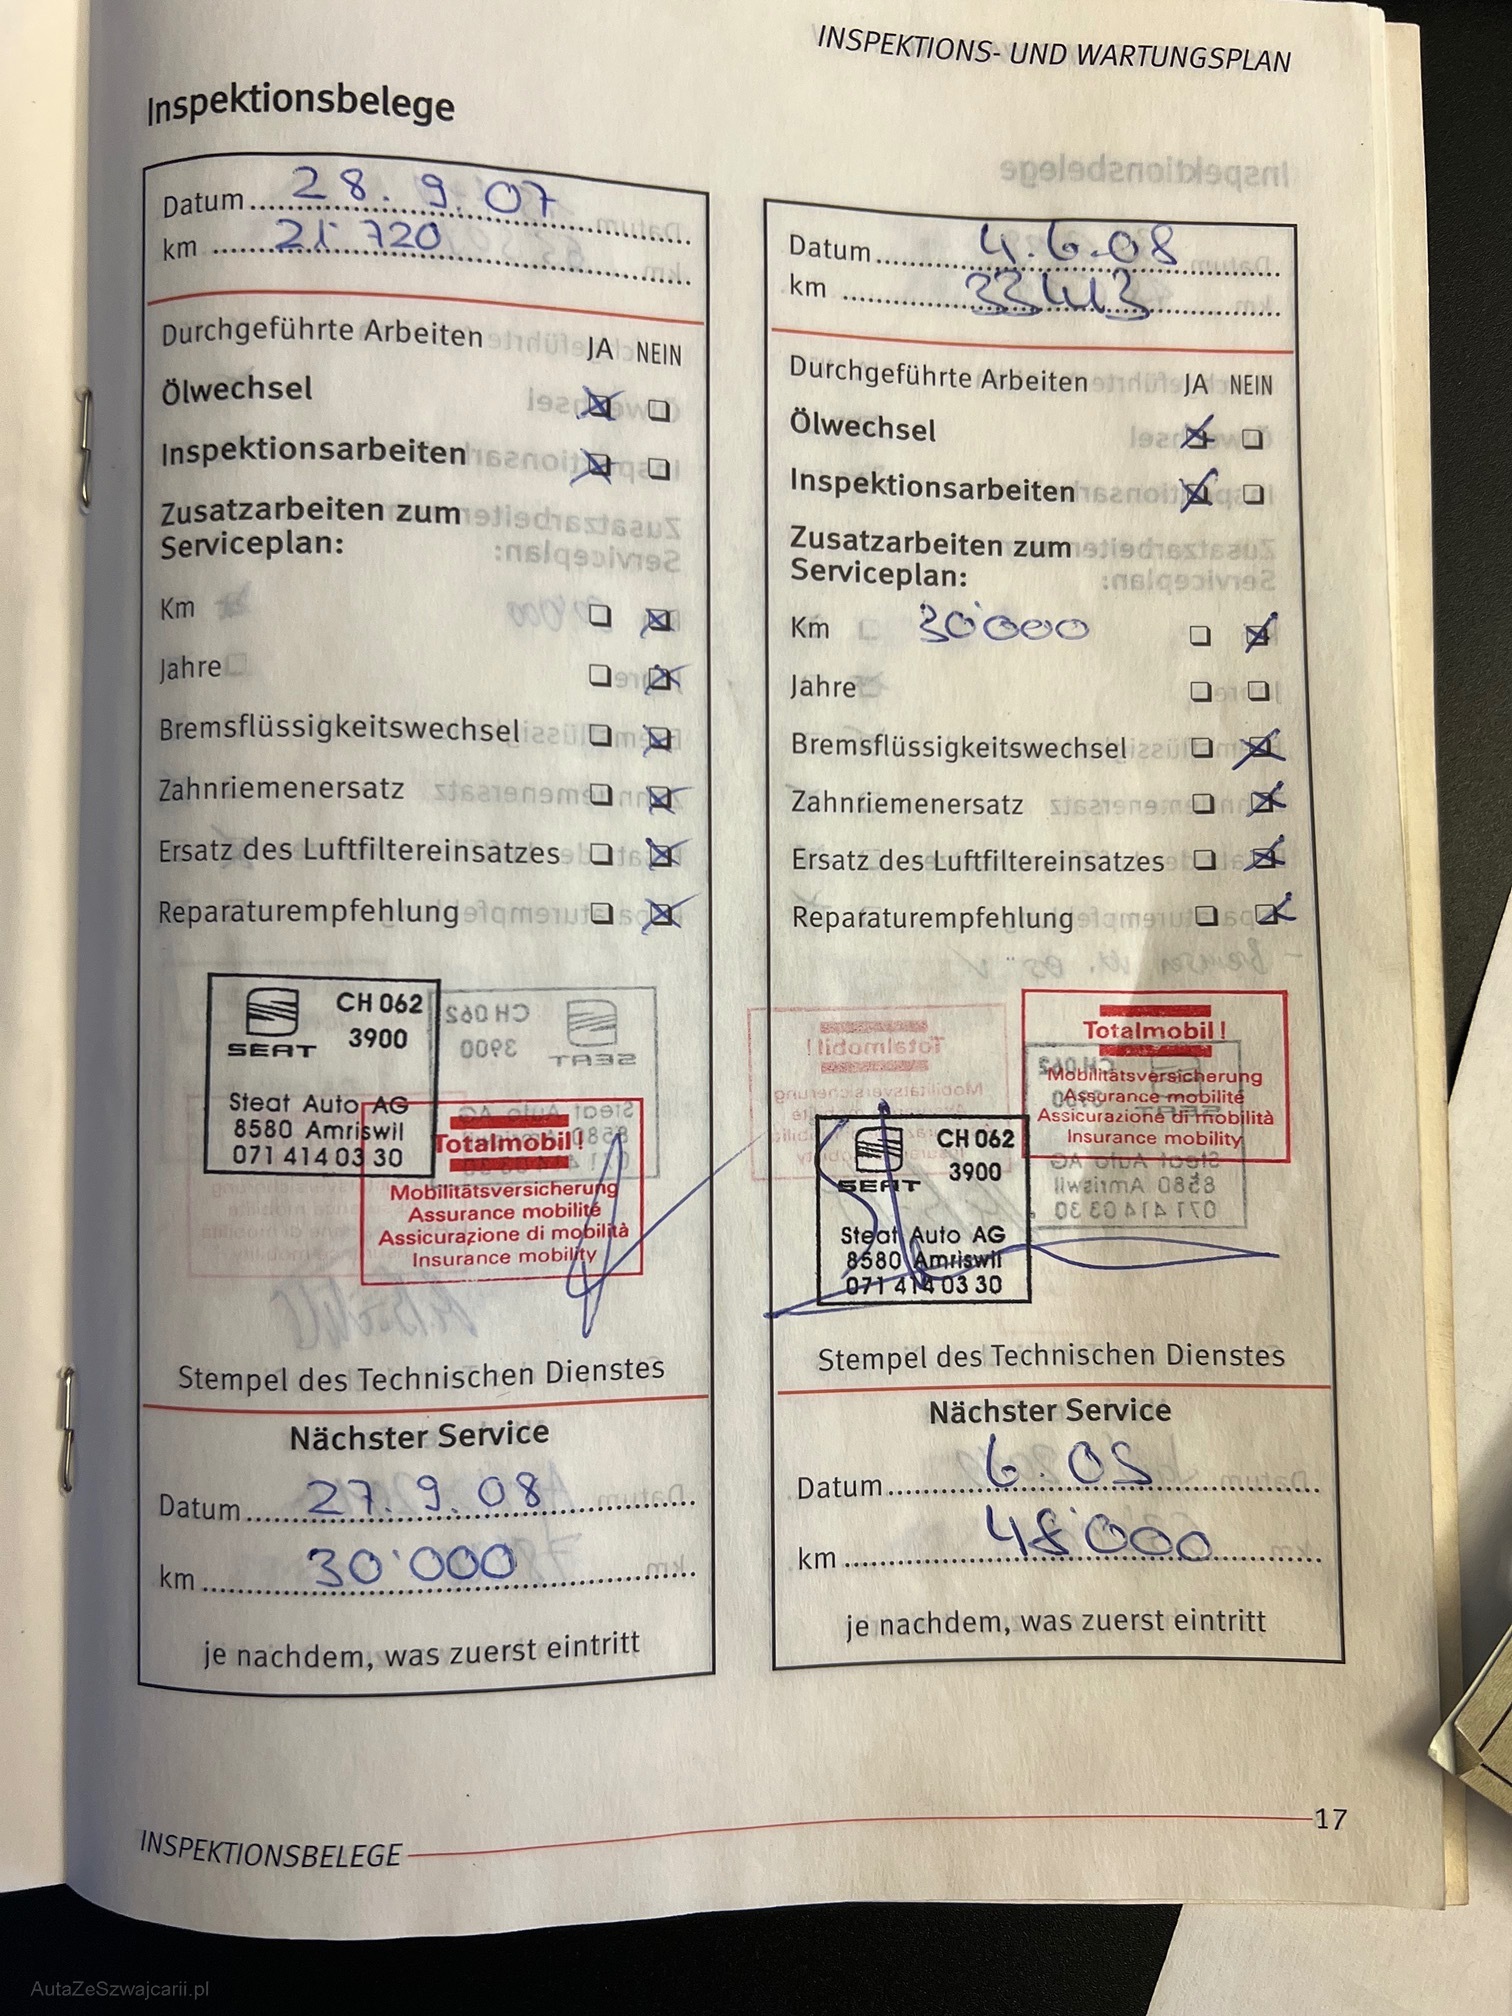 INSPEKTIONS- UND WARTUNGSPLAN
Inspektionsbelege
Datum 28. 9. 07
km 21'720
Durchgeführte Arbeiten JA NEIN
Ölwechsel
Inspektionsarbeiten
Zusatzarbeiten zum
Serviceplan:
Km
Jahre
Bremsflüssigkeitswechsel
Zahnriemenersatz
Ersatz des Luftfiltereinsatzes
Reparaturempfehlung
CH 062
3900
SEAT
Steat Auto AG
8580 Amriswil
071 414 03 30
Totalmobil!
Mobilitätsversicherung
Assurance mobilité
Assicurazione di mobilità
Insurance mobility
Stempel des Technischen Dienstes
Nächster Service
Datum 27. 9. 08
km 30'000
je nachdem, was zuerst eintritt
Datum 4.6.08
km 33413
Durchgeführte Arbeiten JA NEIN
Ölwechsel
Inspektionsarbeiten
Zusatzarbeiten zum
Serviceplan:
Km 30'000
Jahre
Bremsflüssigkeitswechsel
Zahnriemenersatz
Ersatz des Luftfiltereinsatzes
Reparaturempfehlung
Totalmobil!
Mobilitätsversicherung
Assurance mobilité
Assicurazione di mobilità
Insurance mobility
CH 062
3900
SEAT
Steat Auto AG
8580 Amriswil
071 414 03 30
Stempel des Technischen Dienstes
Nächster Service
Datum 6.09
km 48'000
je nachdem, was zuerst eintritt
INSPEKTIONSBELEGE 17
AutaZeSzwajcarii.pl